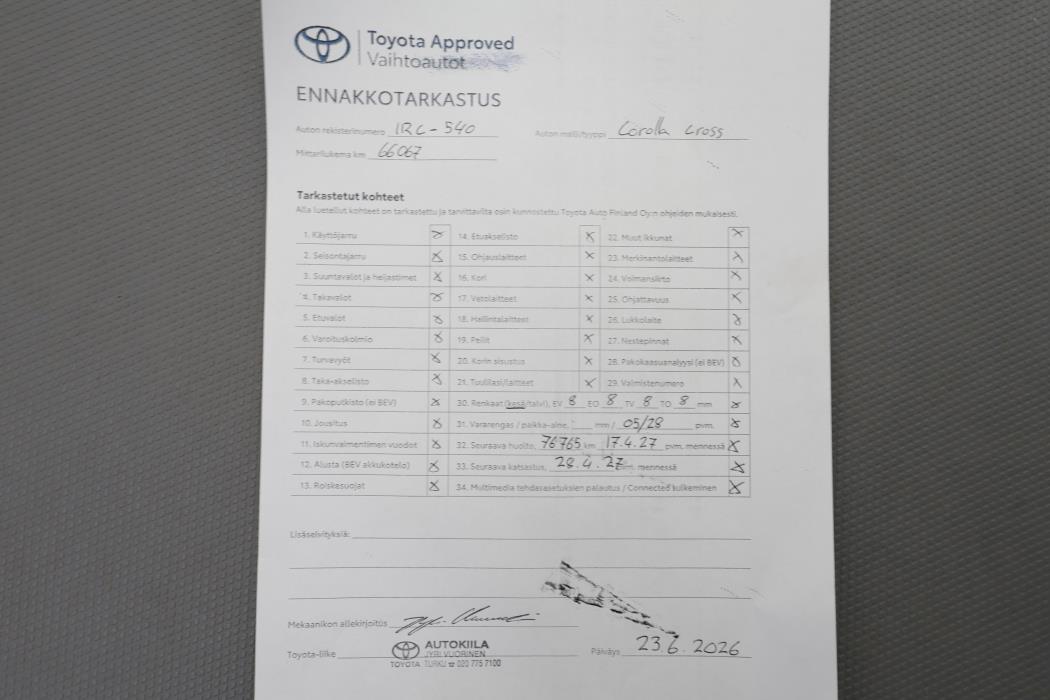 Toyota Approved
Vaihtoautot
ENNAKKOTARKASTUS
Auton rekisterinumero IRC-540 Auton malli/tyyppi Corolla Cross
Mittarilukema km 66067
Tarkastetut kohteet
Alla luetellut kohteet on tarkastettu ja tarvittavilta osin kunnostettu Toyota Auto Finland Oy:n ohjeiden mukaisesti.
1. Käyttöjarru X 14. Etuakselisto X 22. Muut ikkunat X
2. Seisontajarru X 15. Ohjauslaitteet X 23. Merkinantolaitteet X
3. Suuntavalot ja heijastimet X 16. Kori X 24. Voimansiirto X
4. Takavalot X 17. Vetolaitteet X 25. Ohjattavuus X
5. Etuvalot X 18. Hallintalaitteet X 26. Lukkolaite X
6. Varoituskolmio X 19. Peilit X 27. Nestepinnat X
7. Turvavyöt X 20. Korin sisustus X 28. Pakokaasuanalyysi (ei BEV) X
8. Taka-akselisto X 21. Tuulilasi/laitteet X 29. Valmistenumero X
9. Pakoputkisto (ei BEV) X 30. Renkaat (kesä/talvi), EV 8 EO 8 TV 8 TO 8 mm X
10. Jousitus X 31. Vararengas / paikka-aine, mm / 05/28 pvm. X
11. Iskunvaimentimien vuodot X 32. Seuraava huolto, 76765 km 17.4.27 pvm. mennessä X
12. Alusta (BEV akkukotelo) X 33. Seuraava katsastus, 28.4.27 mennessä X
13. Roiskesuojat X 34. Multimedia tehdasasetuksien palautus / Connected sulkeminen X
Lisäselvityksiä:
Mekaanikon allekirjoitus
Toyota-liike AUTOKIILA Päiväys 23.6.2026
JYRI VUORINEN
TOYOTA TURKU ☎ 020 775 7100